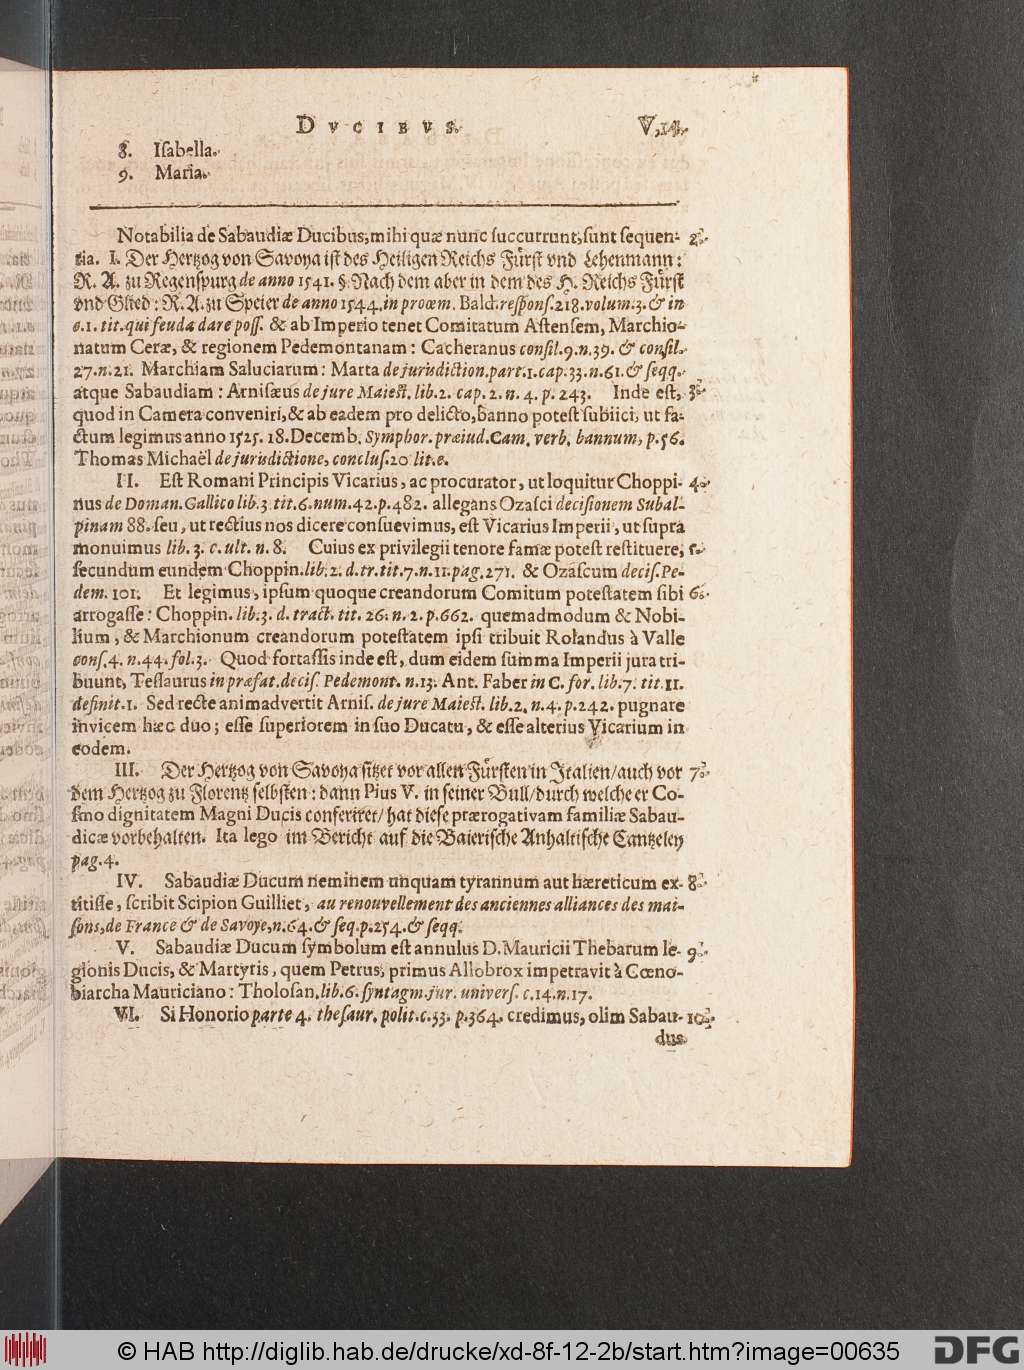 DVCIBVS. V,14.
8. Iſabella.
9. Maria.
Notabilia de Sabaudiæ Ducibus, mihi quæ nunc ſuccurrunt, ſunt ſequen- 2.
tia. I. Der Hertzog von Savoya iſt des Heiligen Reichs Fürſt vnd Lehenmann:
R. A. zu Regenſpurg de anno 1541. §. Nach dem aber in dem des H. Reichs Fürſt
vnd Glied: R. A. zu Speier de anno 1544. in proœm. Bald. reſponſ. 218. volum. 3. & in
c. 1. tit. qui feuda dare poſſ. & ab Imperio tenet Comitatum Aſtenſem, Marchio-
natum Ceræ, & regionem Pedemontanam: Cacheranus conſil. 9. n. 39. & conſil.
27. n. 21. Marchiam Saluciarum: Marta de jurisdiction. part. 1. cap. 33. n. 61. & ſeqq.
atque Sabaudiam: Arniſæus de jure Maieſt. lib. 2. cap. 2. n. 4. p. 243. Inde eſt, 3.
quod in Camera conveniri, & ab eadem pro delicto, banno poteſt ſubiici, ut fa-
ctum legimus anno 1525. 18. Decemb. Symphor. præiud. Cam. verb. bannum, p. 56.
Thomas Michaël de jurisdictione, concluſ. 20 lit. e.
II. Eſt Romani Principis Vicarius, ac procurator, ut loquitur Choppi- 4.
nus de Doman. Gallico lib. 3 tit. 6. num. 42. p. 482. allegans Ozaſci deciſionem Subal-
pinam 88. ſeu, ut rectius nos dicere conſuevimus, eſt Vicarius Imperii, ut ſupra
monuimus lib. 3. c. ult. n. 8. Cuius ex privilegii tenore famæ poteſt reſtituere, 5.
ſecundum eundem Choppin. lib. 2. d. tr. tit. 7. n. 11. pag. 271. & Ozaſcum deciſ. Pe-
dem. 101. Et legimus, ipſum quoque creandorum Comitum poteſtatem ſibi 6.
arrogaſſe: Choppin. lib. 3. d. tract. tit. 26. n. 2. p. 662. quemadmodum & Nobi-
lium, & Marchionum creandorum poteſtatem ipſi tribuit Rolandus à Valle
conſ. 4. n. 44. fol. 3. Quod fortaſſis inde eſt, dum eidem ſumma Imperii jura tri-
buunt, Teſſaurus in præfat. deciſ. Pedemont. n. 13. Ant. Faber in C. for. lib. 7. tit 11.
definit. 1. Sed recte animadvertit Arniſ. de jure Maieſt. lib. 2. n. 4. p. 242. pugnare
invicem hæc duo; eſſe ſuperiorem in ſuo Ducatu, & eſſe alterius Vicarium in
eodem.
III. Der Hertzog von Savoya ſitzet vor allen Fürſten in Italien/auch vor 7.
dem Hertzog zu Florentz ſelbſten: dann Pius V. in ſeiner Bull/durch welche er Co-
ſmo dignitatem Magni Ducis conferiret/ hat dieſe prærogativam familiæ Sabau-
dicæ vorbehalten. Ita lego im Bericht auf die Baieriſche Anhaltiſche Cantzeley
pag. 4.
IV. Sabaudiæ Ducum neminem unquam tyrannum aut hæreticum ex- 8.
titiſſe, ſcribit Scipion Guilliet, au renouvellement des anciennes alliances des mai-
ſons, de France & de Savoye, n. 64. & ſeq. p. 254. & ſeqq.
V. Sabaudiæ Ducum ſymbolum eſt annulus D. Mauricii Thebarum le- 9.
gionis Ducis, & Martyris, quem Petrus, primus Allobrox impetravit à Cœno-
biarcha Mauriciano: Tholoſan. lib. 6. ſyntagm. jur. univerſ. c. 14. n. 17.
VI. Si Honorio parte 4. theſaur. polit. c. 53. p. 364. credimus, olim Sabau- 10.
dus
© HAB http://diglib.hab.de/drucke/xd-8f-12-2b/start.htm?image=00635
DFG